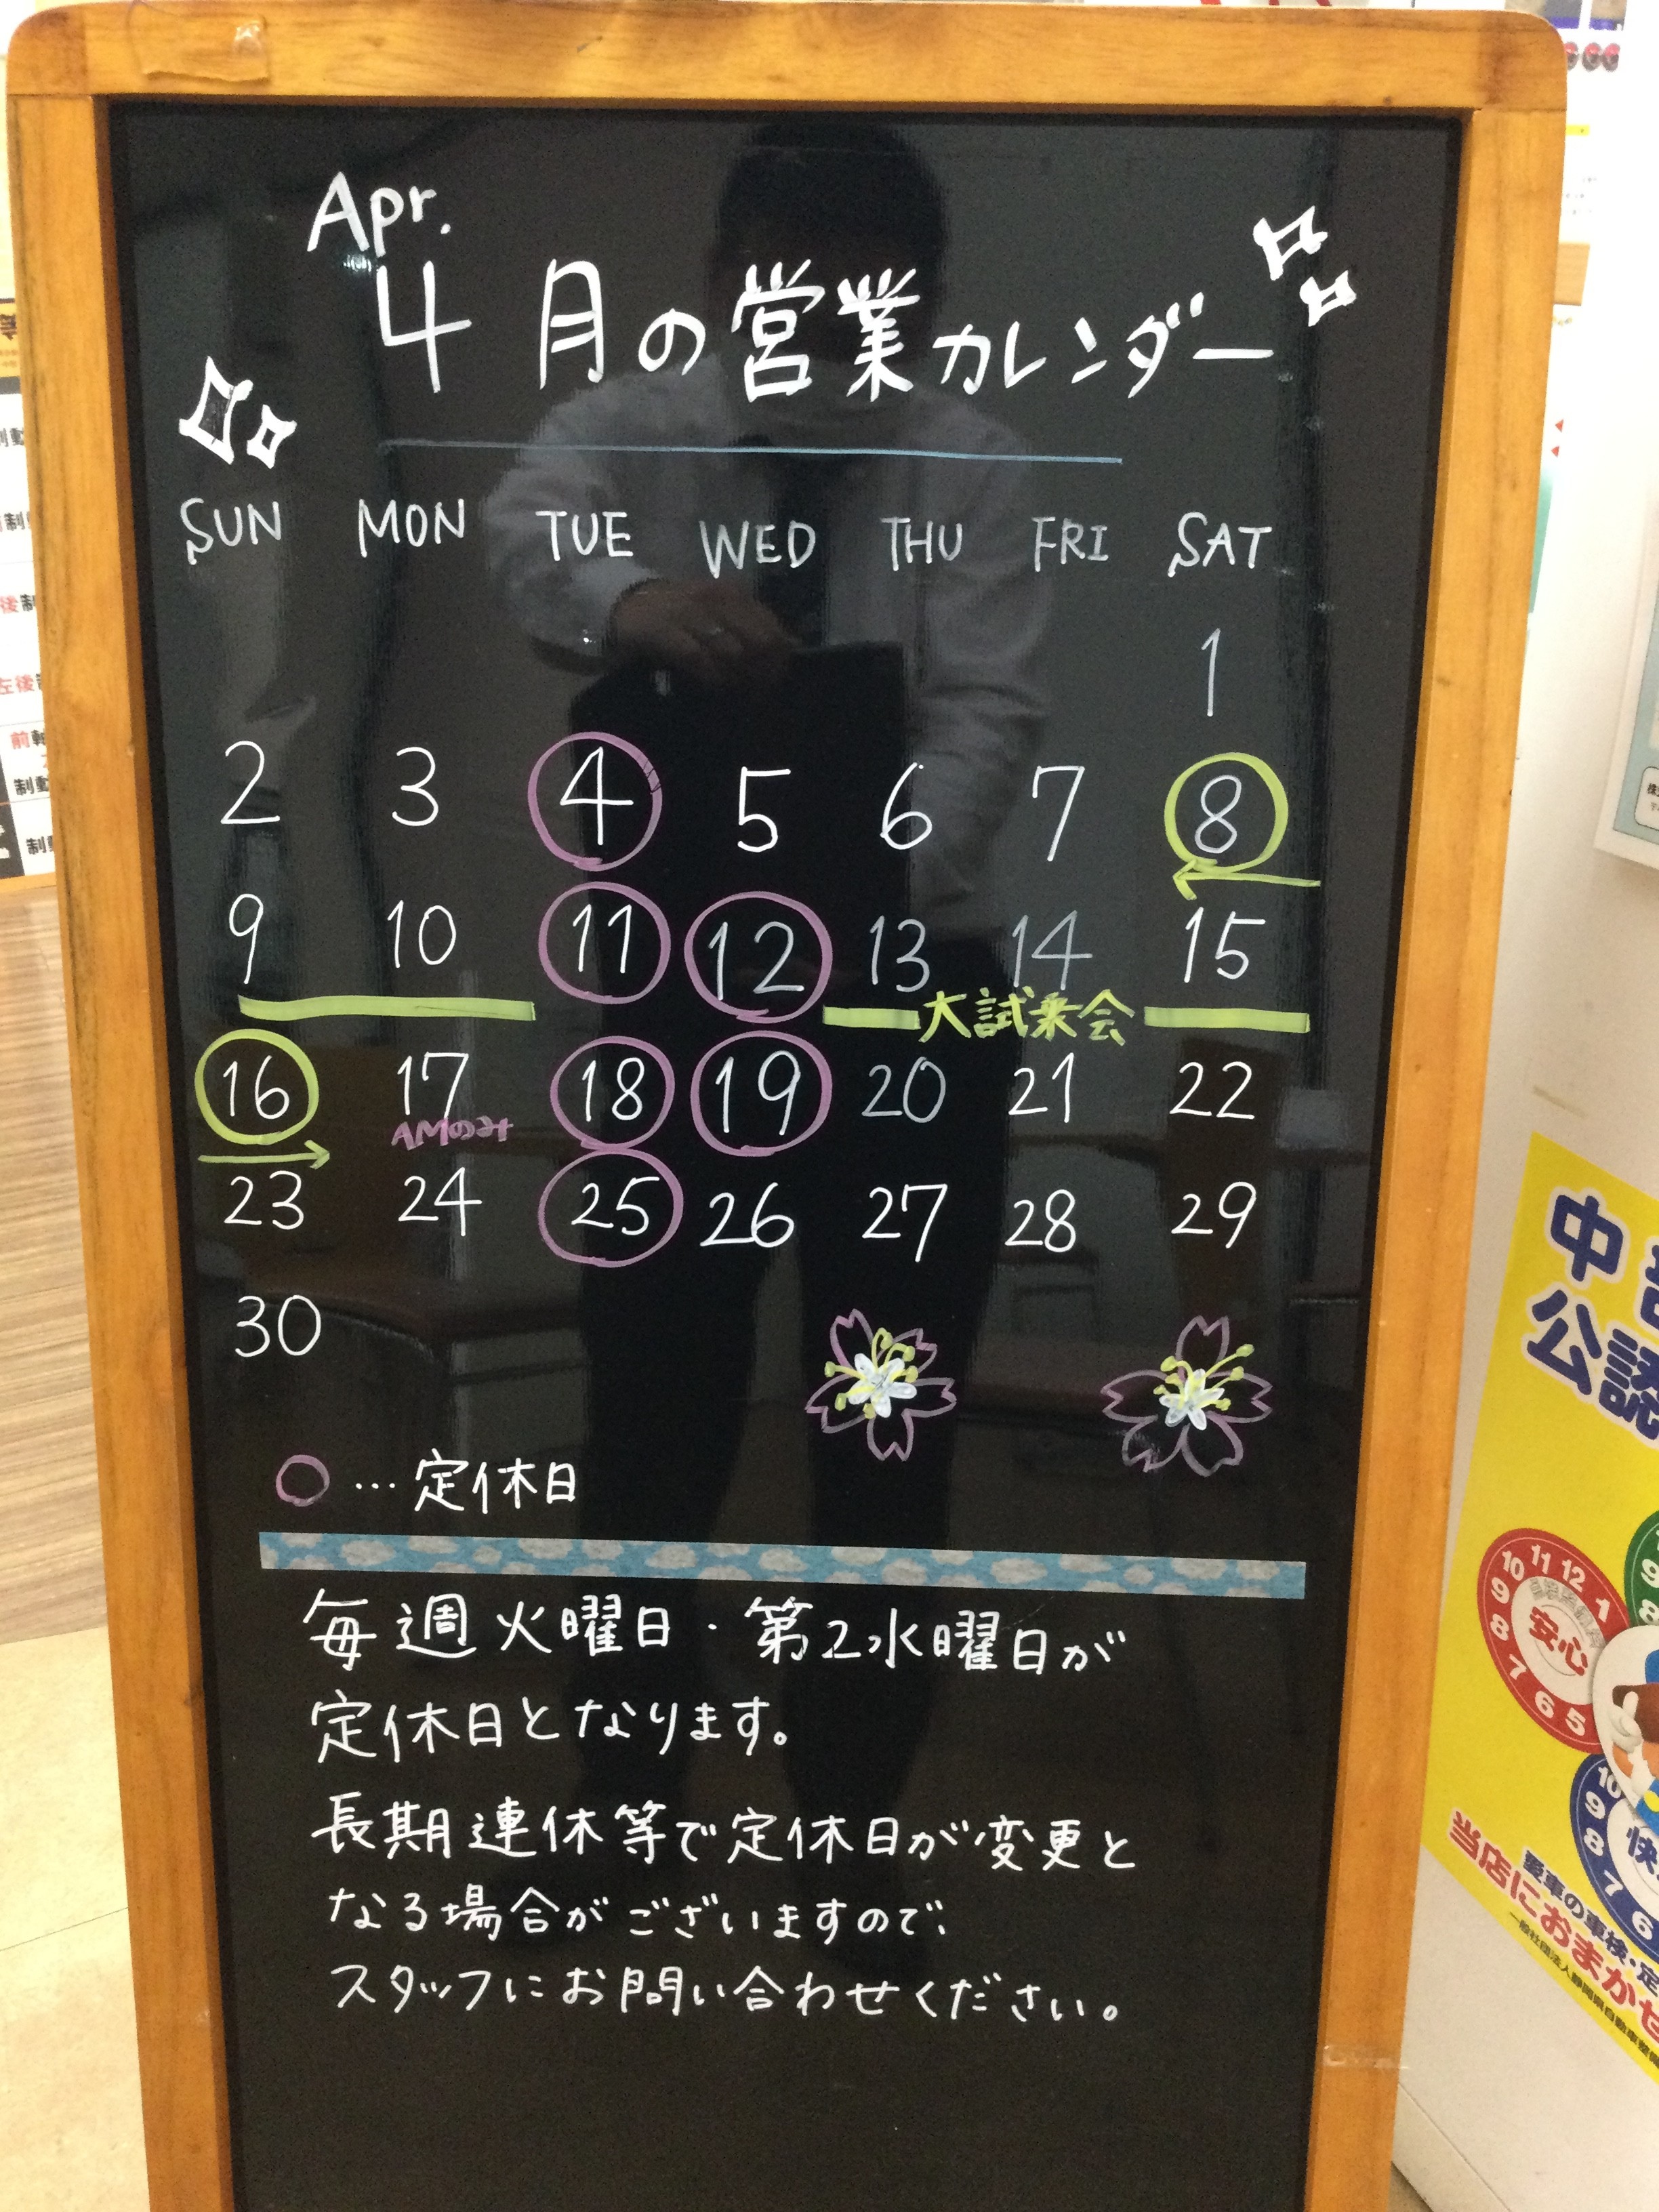 Apr.
4月の営業カレンダー
SUN MON TUE WED THU FRI SAT
1
2 3 4 5 6 7 8
9 10 11 12 13 14 15
大試乗会
16 17 18 19 20 21 22
AMのみ
23 24 25 26 27 28 29
30
○…定休日
毎週火曜日・第2水曜日が
定休日となります。
長期連休等で定休日が変更と
なる場合がございますので、
スタッフにお問い合わせください。
中
公認
10 11 12
9 1
8 安心
7
6 5
10
9
8 快
7
6
愛車の車検・定
当店におまかせ
一般社団法人静岡県自動車整備
制動
制
後制
左後
前軸
制動
制動